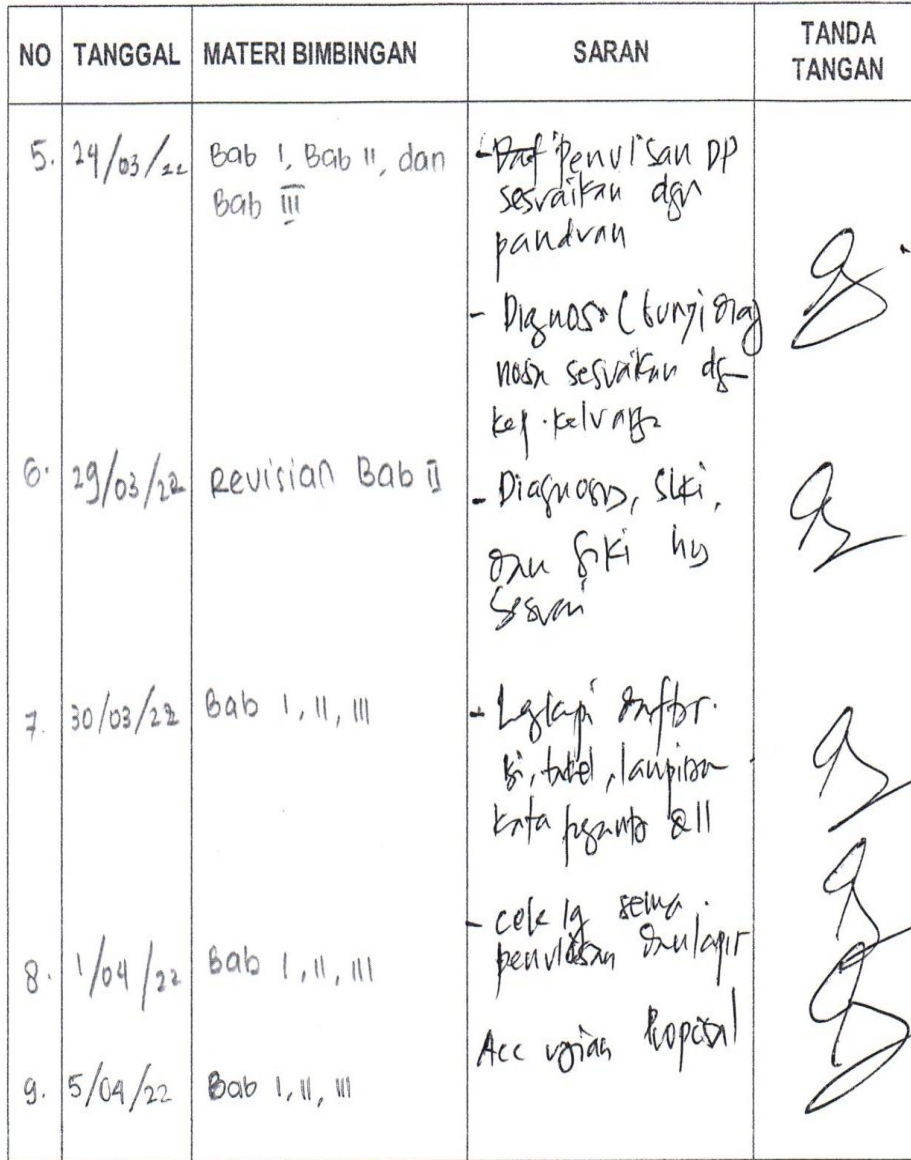 NO TANGGAL MATERI BIMBINGAN SARAN TANDA TANGAN
5. 24/03/22 Bab I, Bab II, dan Bab III
- Penulisan DP
sesuaikan dgn
panduan
- Diagnosa (
nosa sesuaikan dg
kep. keluarga
6. 29/03/22 Revisian Bab II
- Diagnosis, SLKI,
dan SIKI hrs
sesuai
7. 30/03/22 Bab I, II, III
- Lgkapi daftar
isi, tabel, lampiran
kata pganta dll
8. 1/04/22 Bab I, II, III
- cek lg semua
penulisan
9. 5/04/22 Bab I, II, III
Acc ujian Proposal